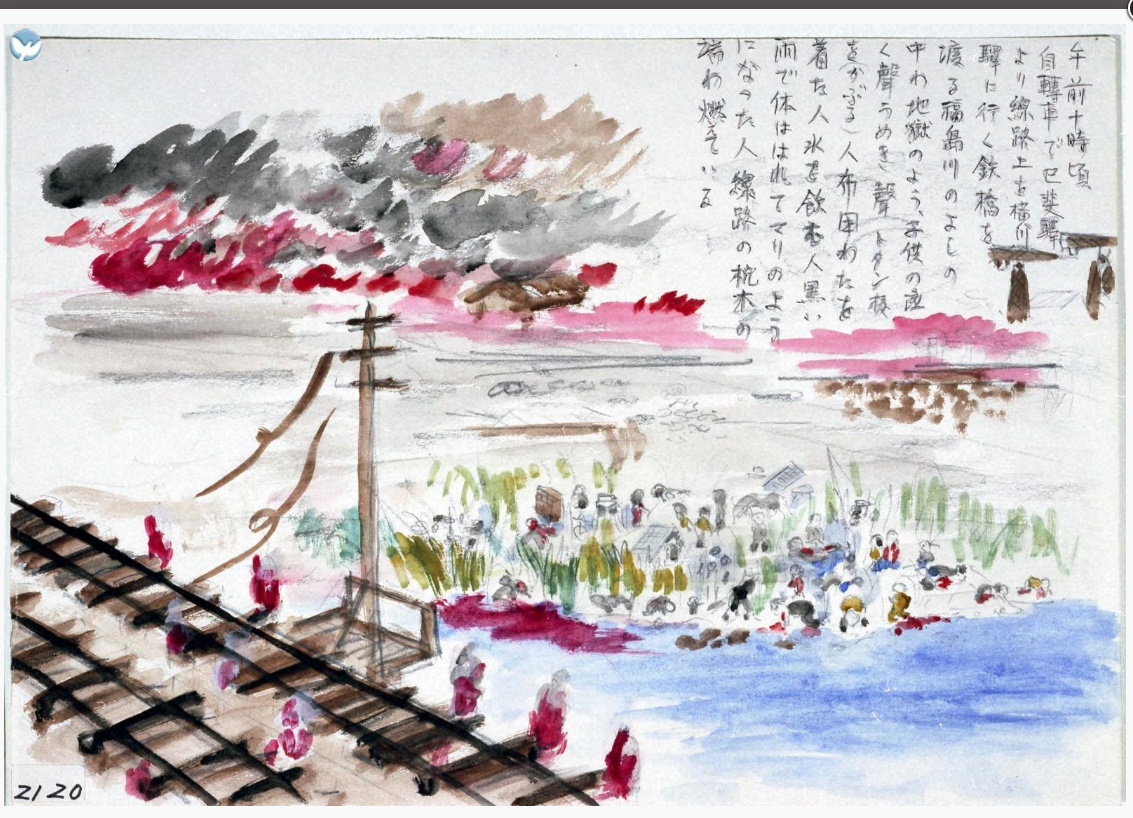 午前十時頃
自轉車で己斐驛
より線路上を横川
驛に行く鉄橋を
渡る福島川のよしの
中わ地獄のよう、子供の泣
く聲うめき聲 トタン板
を(かぶる)人布団わたを
着た人水を飲む人黒い
雨で体ははれてマリのよう
になった人 線路の枕木の
端わ燃えている
2120